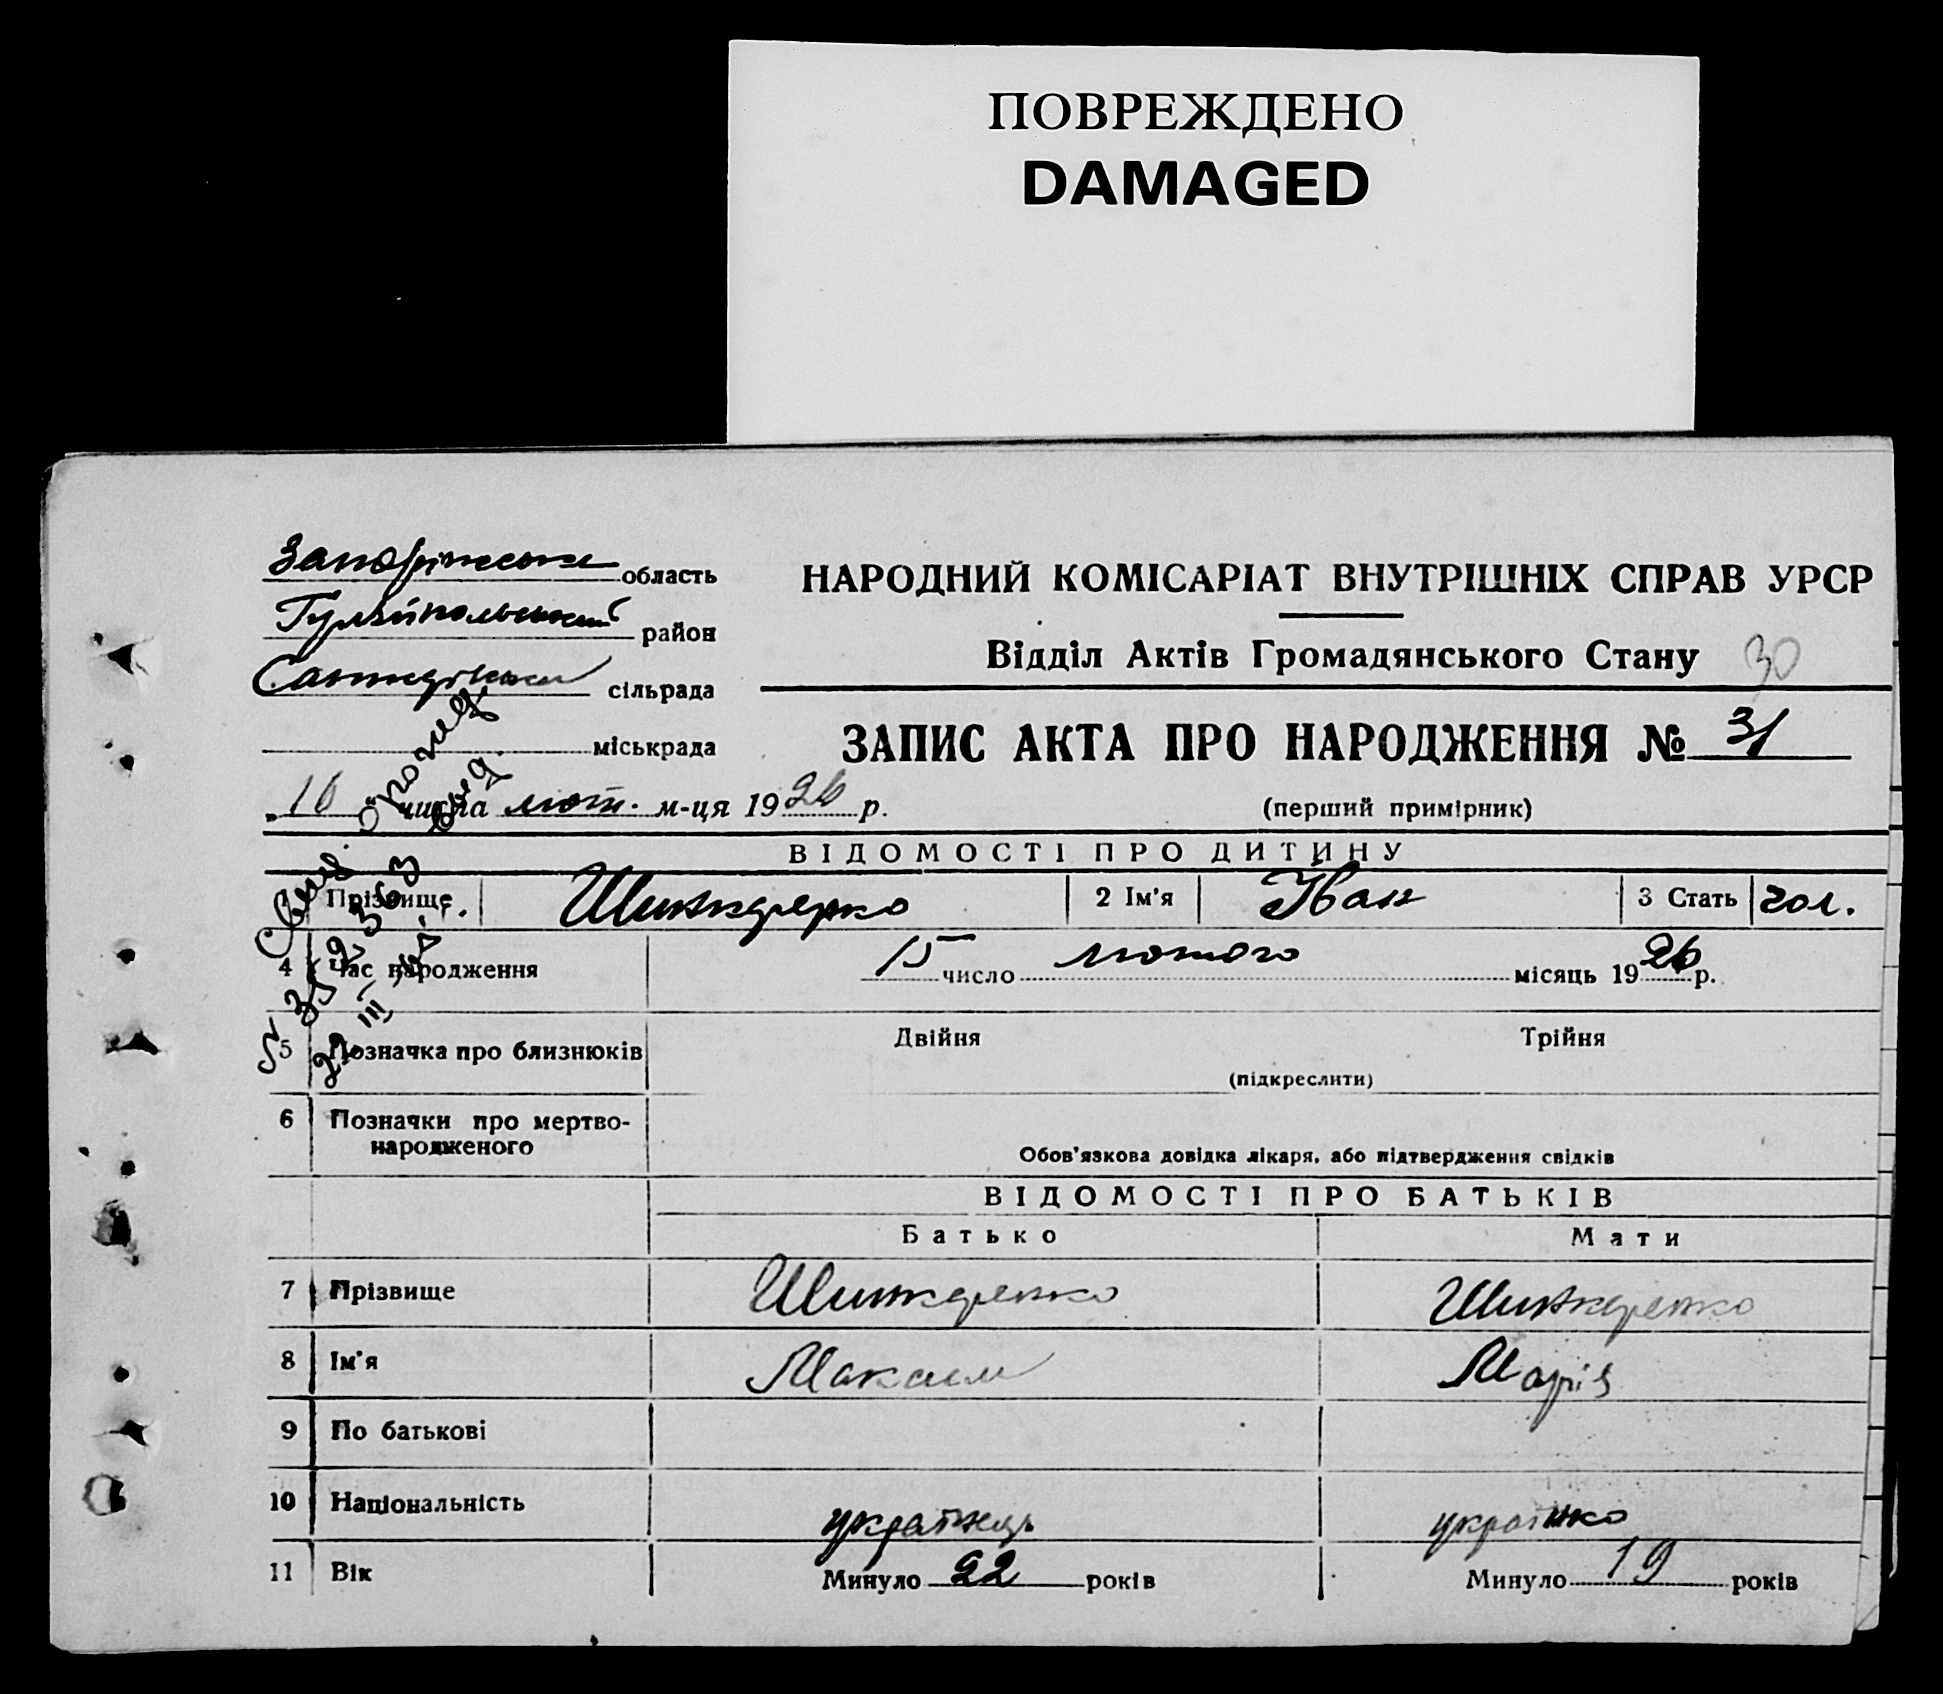 ПОВРЕЖДЕНО
DAMAGED
Запоріжська область
Гуляйпольський район
сільрада
міськрада
НАРОДНИЙ КОМІСАРІАТ ВНУТРІШНІХ СПРАВ УРСР
Відділ Актів Громадянського Стану 30
ЗАПИС АКТА ПРО НАРОДЖЕННЯ № 31
(перший примірник)
„16 числа лют. м-ця 1926 р.
ВІДОМОСТІ ПРО ДИТИНУ
1 Прізвище Шинкаренко 2 Ім'я Іван 3 Стать чол.
4 Час народження 15 число лютого місяць 1926 р.
5 Позначка про близнюків Двійня Трійня
(підкреслити)
6 Позначки про мертво-
народженого
Обов'язкова довідка лікаря, або підтвердження свідків
ВІДОМОСТІ ПРО БАТЬКІВ
Батько Мати
7 Прізвище Шинкаренко Шинкаренко
8 Ім'я Максим Марія
9 По батькові
10 Національність українець українка
11 Вік Минуло 22 років Минуло 19 років